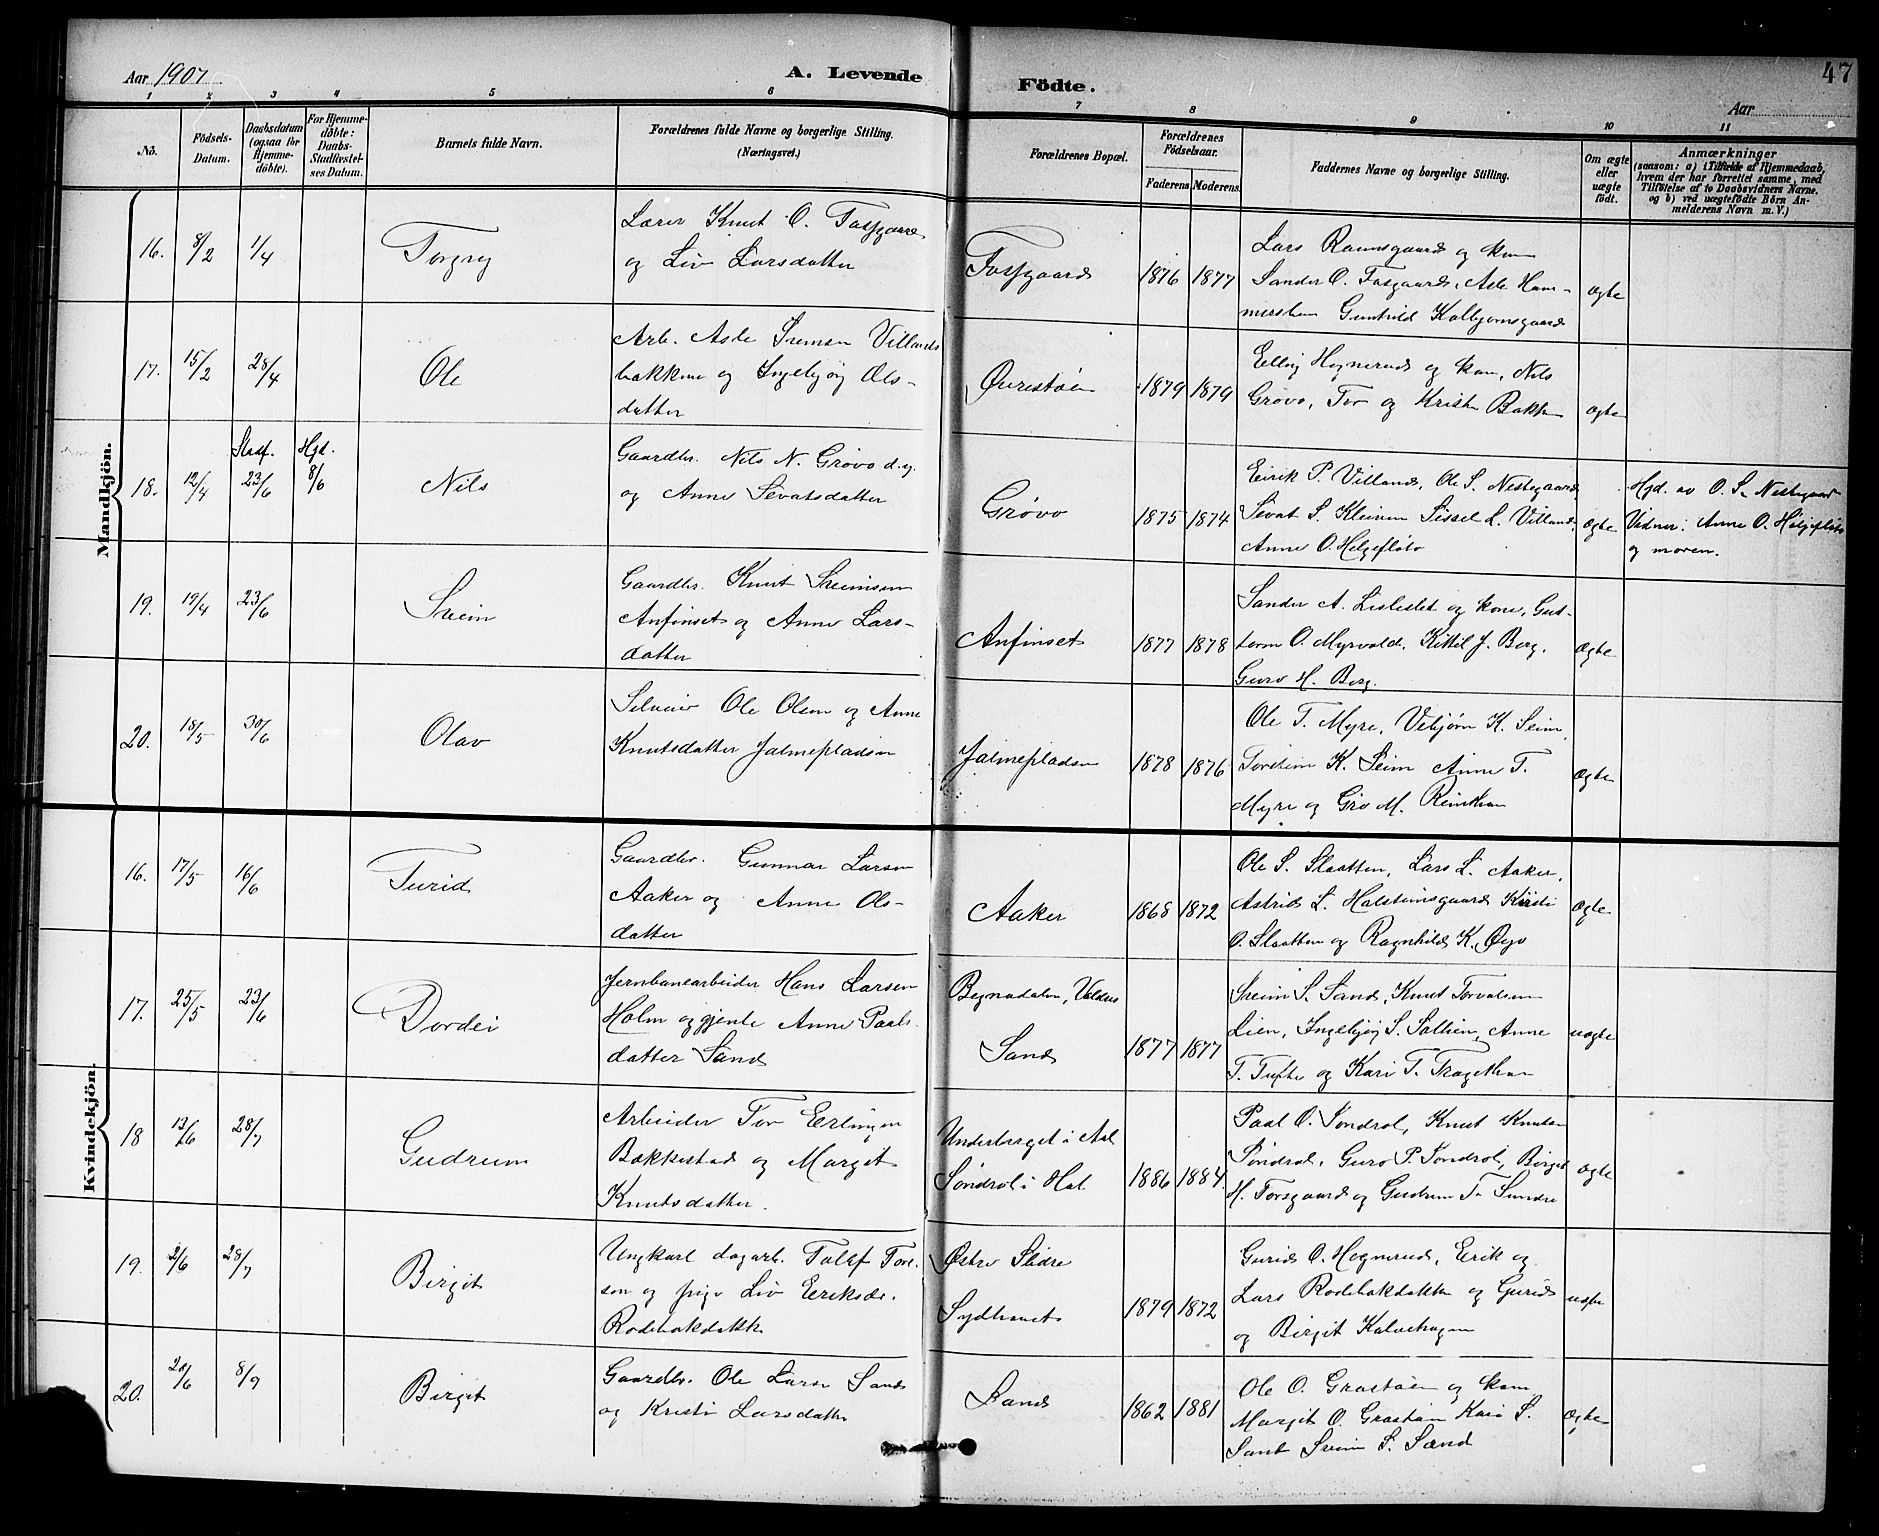 Aar 1907
A. Levende
Födte.
47
Aar
1 2 3 4 5 6 7 8 9 10 11
No.
Födsels-
Datum.
Daabsdatum
(ogsaa for
Hjemme-
döbte).
For Hjemme-
døbte:
Daabs-
Stadfestel-
ses Datum.
Barnets fulde Navn.
Forældrenes fulde Navne og borgerlige Stilling.
(Næringsvei.)
Forældrenes Bopæl.
Forældrenes
Födselsaar.
Faderens Moderens
Faddernes Navne og borgerlige Stilling.
Om ægte
eller
uægte
födt.
Anmærkninger
(saasom: a) i Tilfælde af Hjemmedaab,
hvem der har forrettet samme, med
Tilföielse af to Daabsvidners Navne,
og b) ved uægtefödte Börn An-
melderens Navn m. V.)
Mandkjön.
16. 8/2 1/4 Torgny
Lærer Knut O. Tossgaard
og Liv Larsdatter
Tossgaard 1876 1877
Lars Raunsgaard og kone
Sander O. Tosgaard, Asle Ham-
mershem Gunhild Kolbjørnsgaard
ægte
17. 15/2 28/4 Ole
Arb. Asle Svensen Villands
bakkene og Ingebjørg Ols-
datter
Øvrestøen 1879 1879
Elling Hognerud og kone, Nils
Grøvo, Tor og Kristi Bakken
ægte
18. 12/4 Stadf. 23/6 Hjd. 8/6 Nils
Gaardbr. Nils N. Grøvo d.y.
og Anne Sevatsdatter
Grøvo 1875 1874
Eirik P. Villand, Ole S. Nestegaard
Sevat S. Kleiven Sissel L. Villand,
Anne O. Helgefløto
ægte
Hjd. av O. S. Nestegaard
Vidner: Anne O. Helgefløto
og moren.
19. 19/4 23/6 Svein
Gaardbr. Knut Sveinsen
Anfinset og Anne Lars-
datter
Anfinset 1877 1878
Sander A. Lisleslet og kone, Gut-
torm O. Myrvold, Kittil J. Berg,
Guro H. Berg.
ægte
20. 18/5 30/6 Olav
Selveier Ole Olsen og Anne
Knutsdatter Jalmepladsen
Jalmepladsen 1878 1876
Ole T. Myre, Vebjørn K. Seim,
Torstein K. Seim Anne T.
Myre og Gro M. Reinthon
ægte
Kvindekjön.
16. 17/5 16/6 Turid
Gaardbr. Gunnar Larsen
Aaker og Anne Ols-
datter
Aaker 1868 1872
Ole S. Slaatten, Lars L. Aaker,
Astrid L. Halsteinsgaard Kirsti
O. Slaatten og Ragnhild K. Øyo
ægte
17. 25/5 23/6 Dordei
Jernbanearbeider Hans Larsen
Holm og gjente Anne Paals-
datter Sand
Begnadalen, Valdres
Sand 1877 1877
Svein S. Sand, Knut Torvalsen
Lien, Ingebjørg S. Sollien, Anne
T. Tufte og Kari T. Tragethon
uægte
18 13/6 28/7 Gudrun
Arbeider Tor Erlingen
Bakkestad og Margit
Knutsdatter.
Underberget i Aal
Søndrol i Hol 1886 1884.
Paal O. Søndrol, Knut Knutsen
Søndrol, Guro P. Søndrol, Birgit
H. Torsgaard og Gudrun T. Sundre
ægte
19. 2/6 28/7 Birgit
Ungkarl dagarb. Tollef Tore-
sen og pige Liv Eeriksdr.
Rodebakdokk
Østre Slidre
Sydtvnet 1879 1872
Gurid O. Hognerud, Erik og
Lars Rodebakdokken og Gurid
og Birgit Kalvehagen
uægte
20. 20/6 8/9 Birgit
Gaardbr. Ole Larsen Sand
og Kristi Larsdatter
Sand 1862 1881
Ole O. Grostøen og kone
Margit O. Grostøen Kari S.
Sand Svein S. Sand
ægte